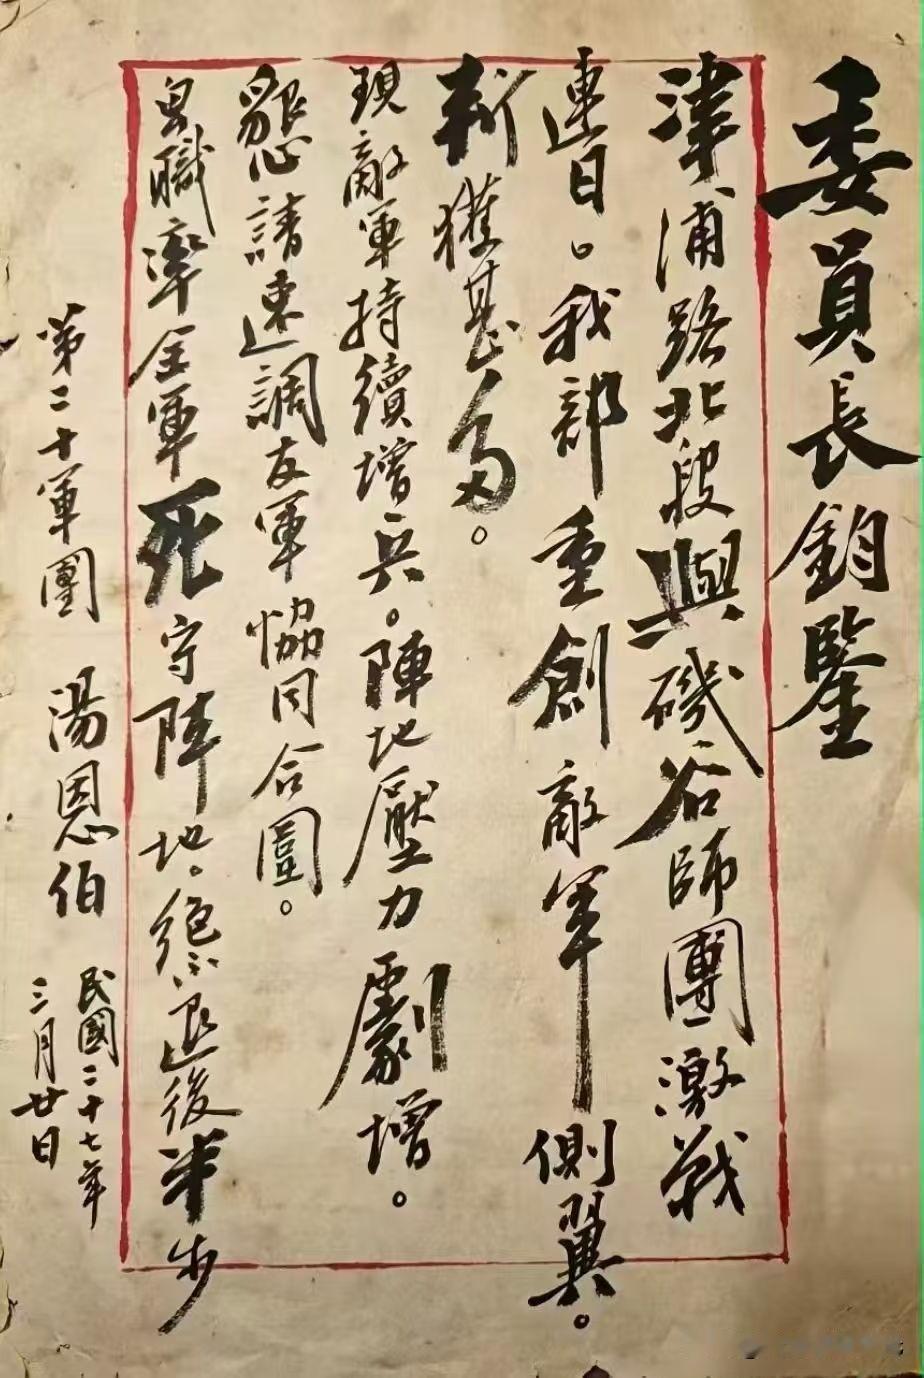 委員長鈞鑒
津浦路北段與磯谷師團激戰
連日。我部重創敵軍側翼。
斬獲甚多。
現敵軍持續增兵。陣地壓力劇增。
懇請速調友軍協同合圍。
卑職率全軍死守陣地。絕不退後半步
第二十軍團 湯恩伯
民國二十七年
三月廿日